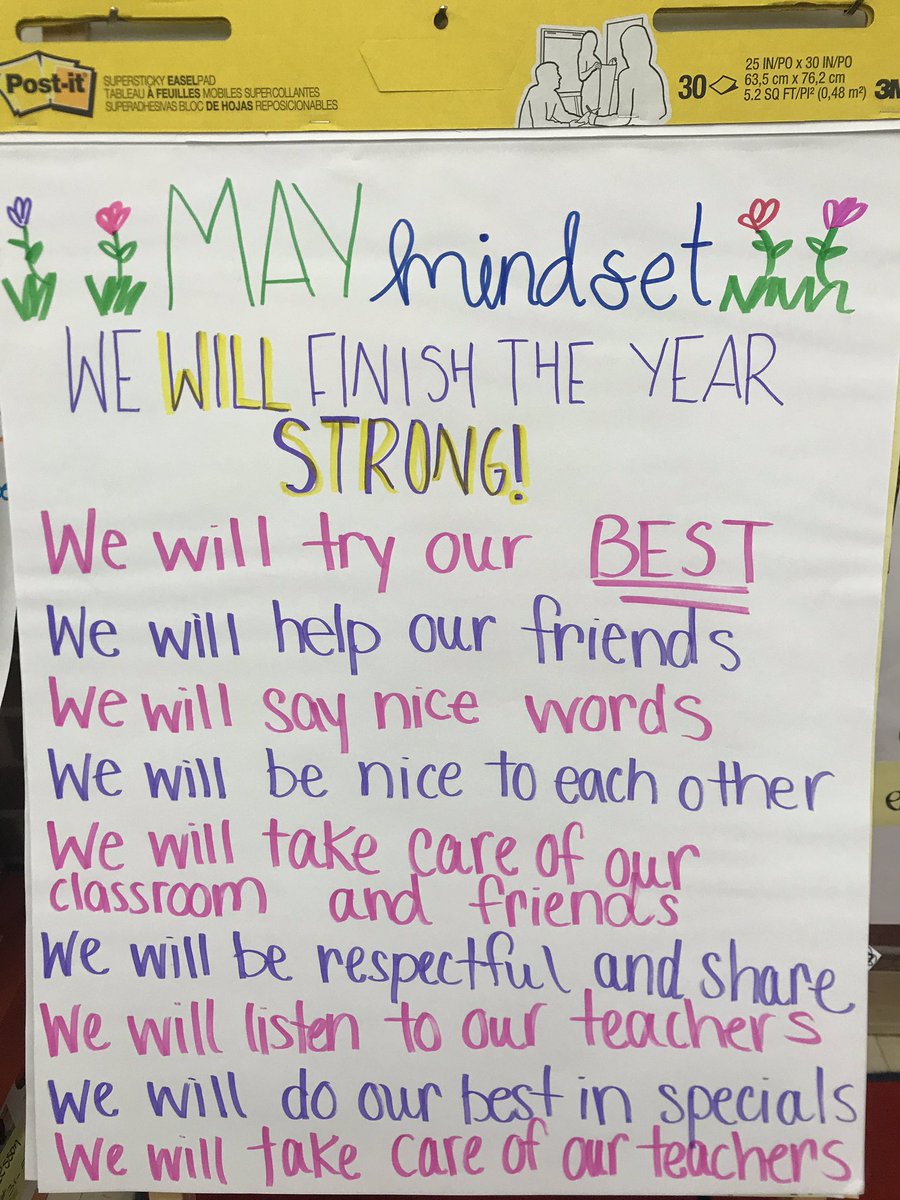 Post-it
SUPERSTICKY EASELPAD
TABLEAU À FEUILLES MOBILES SUPERCOLLANTES
SUPERADHESIVAS BLOC DE HOJAS REPOSICIONABLES
30
25 IN/PO x 30 IN/PO
63,5 cm x 76,2 cm
5.2 SQ FT/PI² (0,48 m²)
3M
MAY mindset
WE WILL FINISH THE YEAR
STRONG!
We will try our BEST
We will help our friends
We will say nice words
We will be nice to each other
We will take care of our
classroom and friends
We will be respectful and share
We will listen to our teachers
We will do our best in specials
We will take care of our teachers